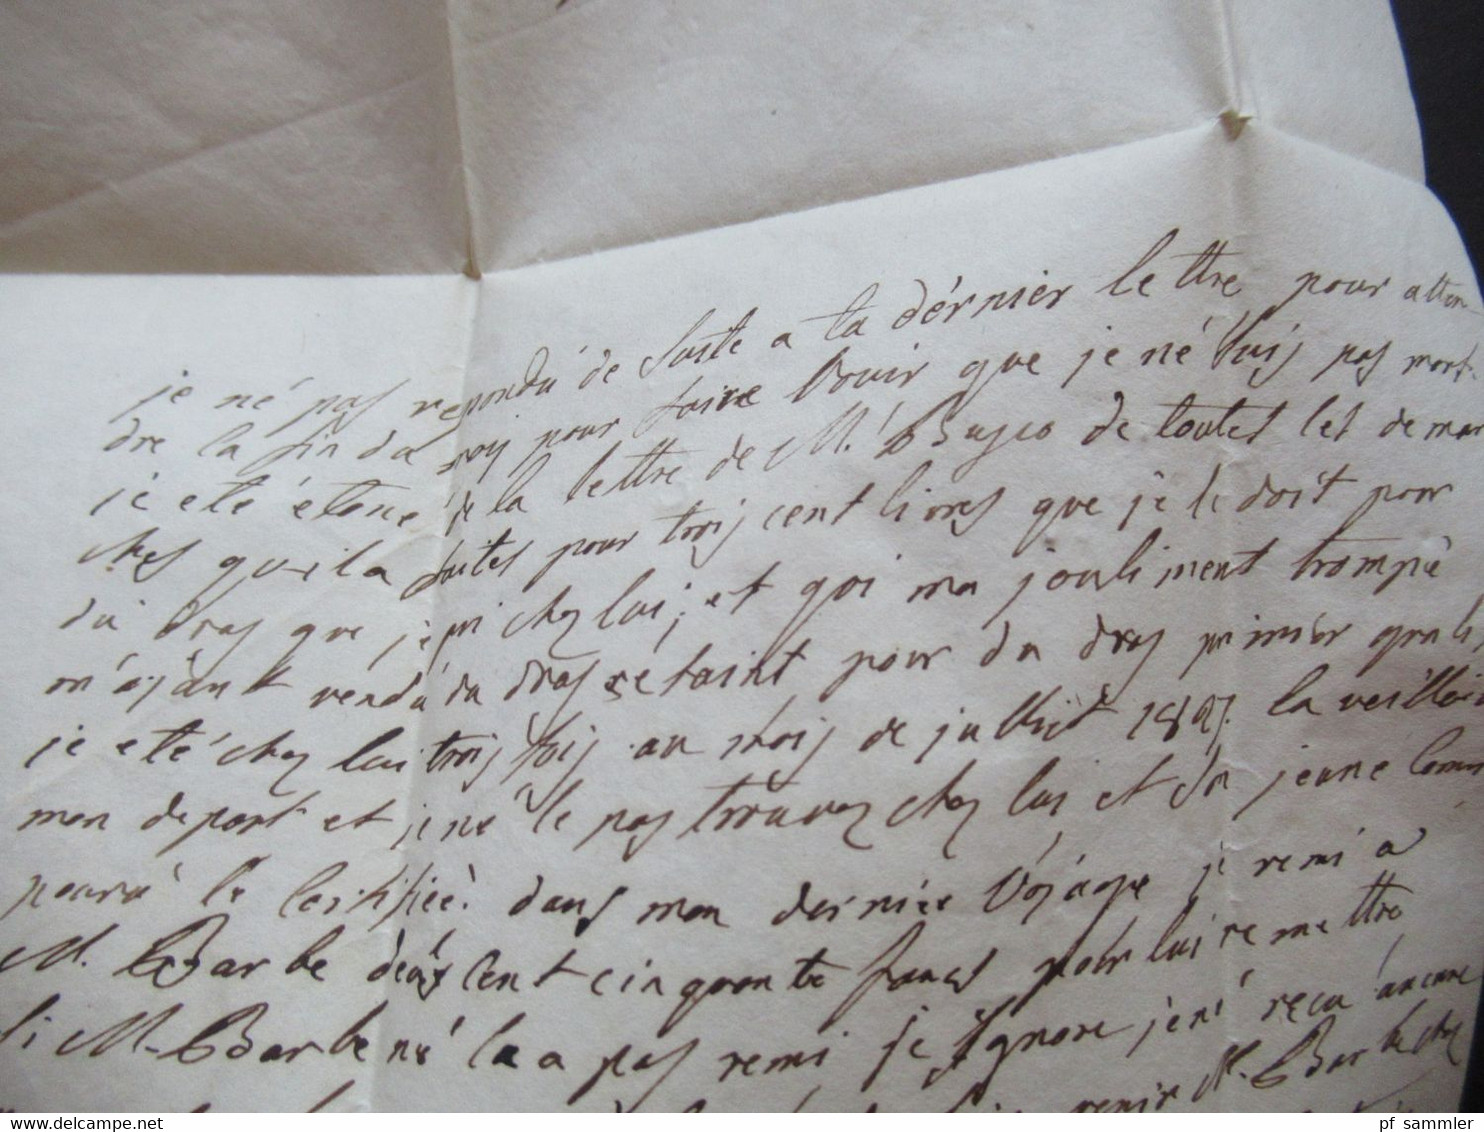 je né pas repondu de suite a ta dérnier lettre pour atten
dre la fin du moy pour faire vouir que je né suis pas mort
je eté étoné de la lettre de M. Bugco de toutes les demar
ches quil a faites pour troij cent livres que je le doit pour
du dras que je pri chez lui, et qoi ma jouliment trompé
m'ajànt véndu du dras sétaint pour du dras primiér qual
je eté chez lui troij fois au moij de julliet 1827 la veille
mon depart et je né le pas trouvez chez lui et son jeune Comi
poura le certifiéè dans mon derniée Vojage je remi a
M. Barbe deux cent cinquante francs pour lui remettre
si M. Barbe né la a pas remi je signore jené recu aucune
venir M. Barbe chez